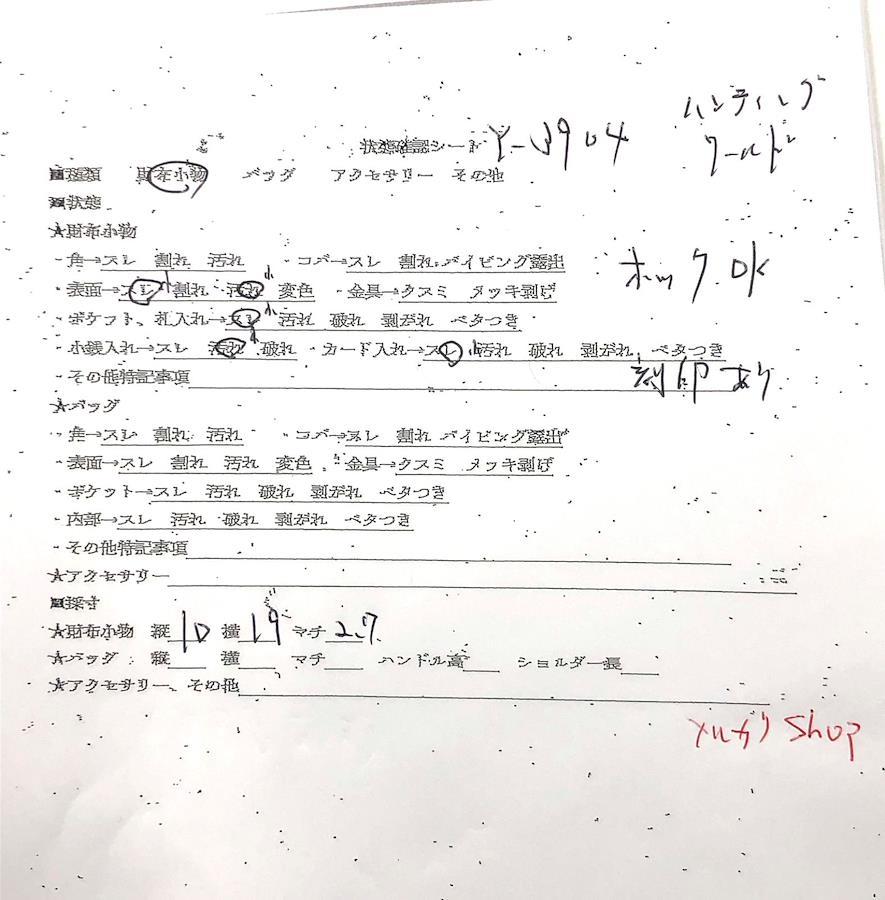 状態確認シート Y-3904 ハンティング
ワールド
■種類 財布小物 バッグ アクセサリー その他
■状態
★財布小物
・角→スレ 割れ 汚れ ・コバ→スレ 割れ パイピング露出
ホック OK
・表面→スレ小 割れ 汚れ小 変色 ・金具→クスミ メッキ剥げ
・ポケット、札入れ→スレ小 汚れ 破れ 剥がれ ベタつき
・小銭入れ→スレ 汚れ小 破れ ・カード入れ→スレ小 汚れ 破れ 剥がれ ベタつき
・その他特記事項 刻印あり
★バッグ
・角→スレ 割れ 汚れ ・コバ→スレ 割れ パイピング露出
・表面→スレ 割れ 汚れ 変色 ・金具→クスミ メッキ剥げ
・ポケット→スレ 汚れ 破れ 剥がれ ベタつき
・内部→スレ 汚れ 破れ 剥がれ ベタつき
・その他特記事項
★アクセサリー
■採寸
★財布小物 縦10 横19 マチ2.7
★バッグ 縦 横 マチ ハンドル高 ショルダー長
★アクセサリー、その他
メルカリ Shop